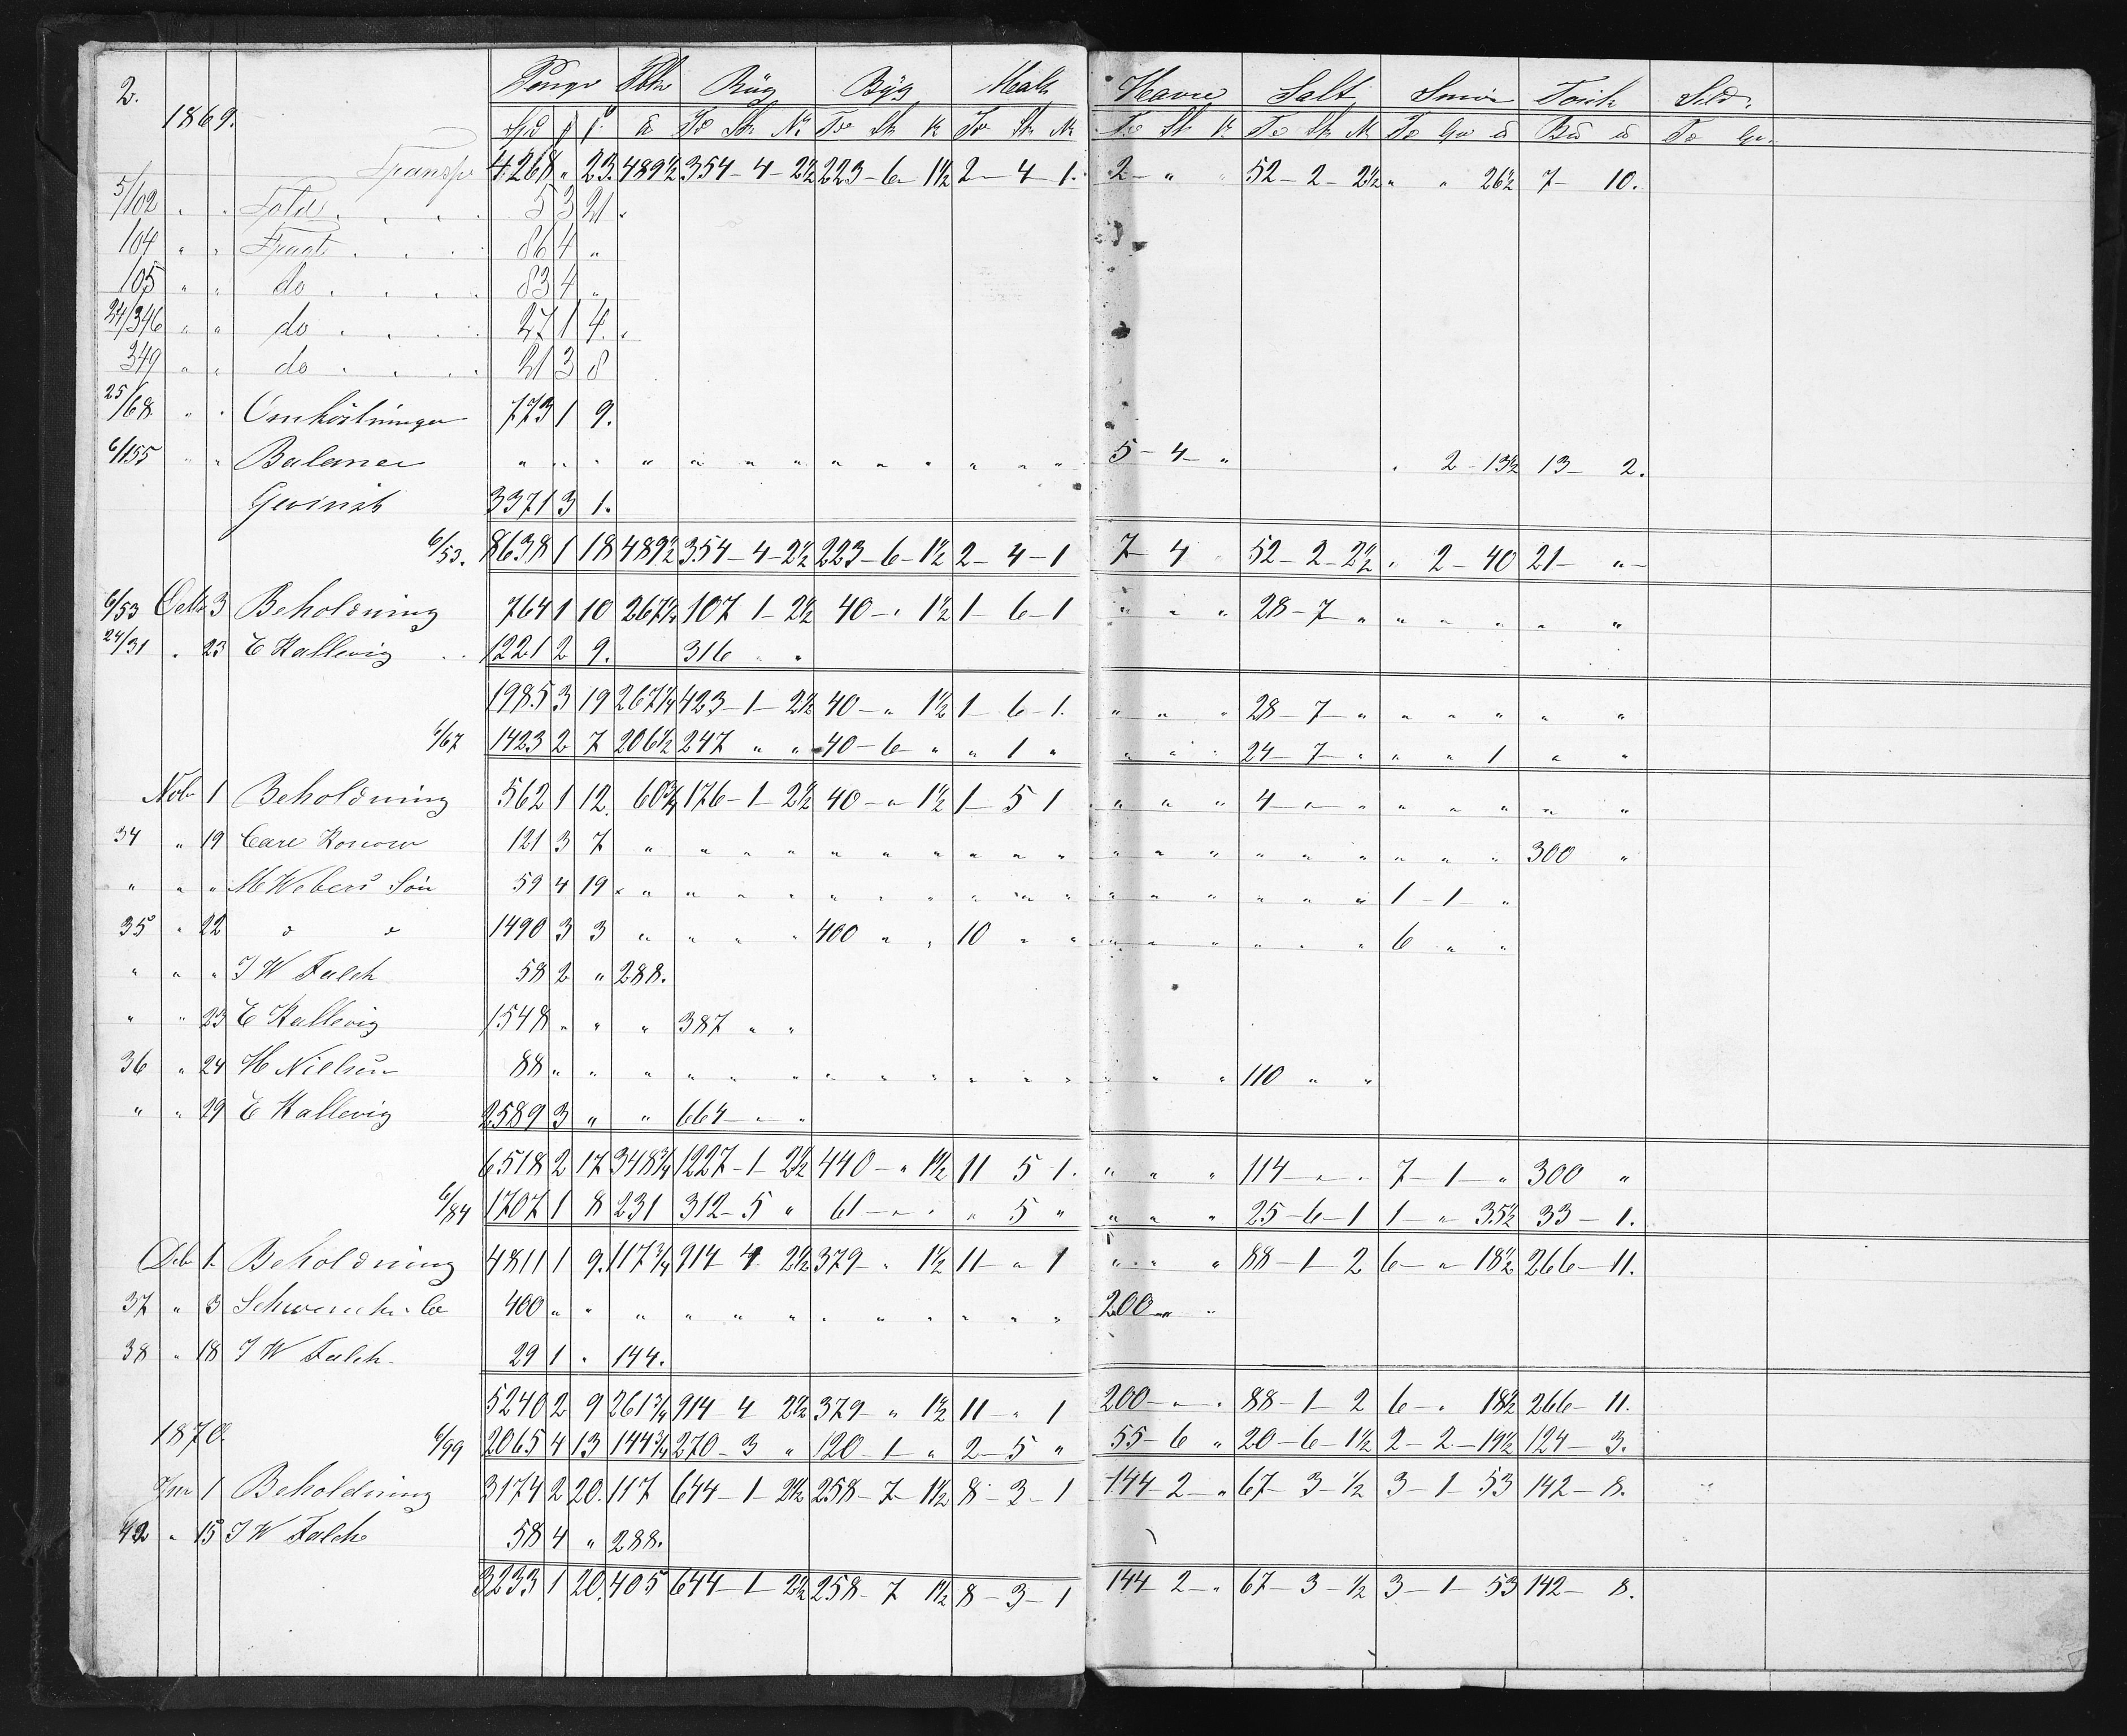 2.
1869.
Penge Tbk Rüg Byg Malt Havre Salt Smör Torsk Sild.
Spd ß Tö Sk To Sk To Sk To Sk To Sk To
Transp 4268 " 23. 489½ 354-4-2½ 223-6-1½ 2-4-1. 2- " " 52-2-2½ " " 26½ 7- 10.
5/102 " " Told 5 3 21.
104 " " Fragt 86 4 "
105 " " do 83 4 "
24/346 " " do 27 1 4.
349 " " do 21 3 8
25/68 " " Omkostninger 773 1 9.
6/155 " " Balance " " " " " " " " " " " " " 5-4- " " 2-13½ 13- 2.
Gevinst 3371 3 1.
6/53. 8638 1 18 489½ 354-4-2½ 223-6-1½ 2-4-1 7-4 " 52-2-2½ " 2-40 21- "-
6/53 Octb 3 Beholdning 764 1 10 267¼ 107 1-2½ 40-" 1½ 1-6-1 " " " 28-7 " " " " " "
24/31 " 23 E Kallevig 1221 2 9. 316 " "
1985 3 19 267¼ 423-1-2½ 40-" 1½ 1-6-1. " " " 28-7- " " " " " "
6/67 1423 2 7 206½ 247 " " 40-6- " " 1 " " " " 24-7- " " " 1 " "
Nob 1 Beholdning 562 1 12. 60¾ 176-1-2½ 40-"-1½ 1-5 1 " " " 4-"- " " " " " "
34 " 19 Carl Konow 121 3 7 " " " " " " " " " " " " " " " " " " " 300 "
" " " M Webers Sön 59 4 19 " " " " " " " " " " " " " " " " 1-1- "
35 " 22 " " 1490 3 3 " " " " 400 " " 10 " " " " " " " " 6 " "
" " " J W Falch 58 2 " 288.
" " 23 E Kallevig 1548 " " " 387 " "
36 " 24 H Nielsen 88 " " " " " " " " " " " " " " " 110 " "
" " 29 E Kallevig 2589 3 " " 664-"-"
6518 2 17 348¾ 1227-1-2½ 440-" 1½ 11 5 1. " " " 114-"-" 7-1-" 300 "
6/84 1707 1 8 231 312-5 " 61-"-" " 5 " " " " 25-6-1 1-" 35½ 33-1.
Deb 1. Beholdning 4811 1 9. 117¾ 914 4 2½ 379- " 1½ 11-" 1 " " " 88-1-2 6-"-18½ 266-11.
37 " 3 400 " " " " " " " " " " " " 200 " "
38 " 18 J W Falch 29 1 " 144.
5240 2 9 261¾ 914 4 2½ 379-" 1½ 11-" 1 200-"-" 88-1-2 6-" 18½ 266-11.
1870.
6/99 2065 4 13 144¾ 270-3 " 120-1-" 2-5 " 55-6 " 20-6-1½ 2-2-19½ 124-3.
Jan 1 Beholdning 3174 2 20. 117 644-1-2½ 258-7-1½ 8-3-1 144-2-" 67-3-½ 3-1-53 142-8.
42 " 15 J W Falch 58 4 " 288.
3233 1 20. 405 644-1-2½ 258-7 1½ 8-3-1 144-2-" 67-3-½ 3-1-53 142-8.